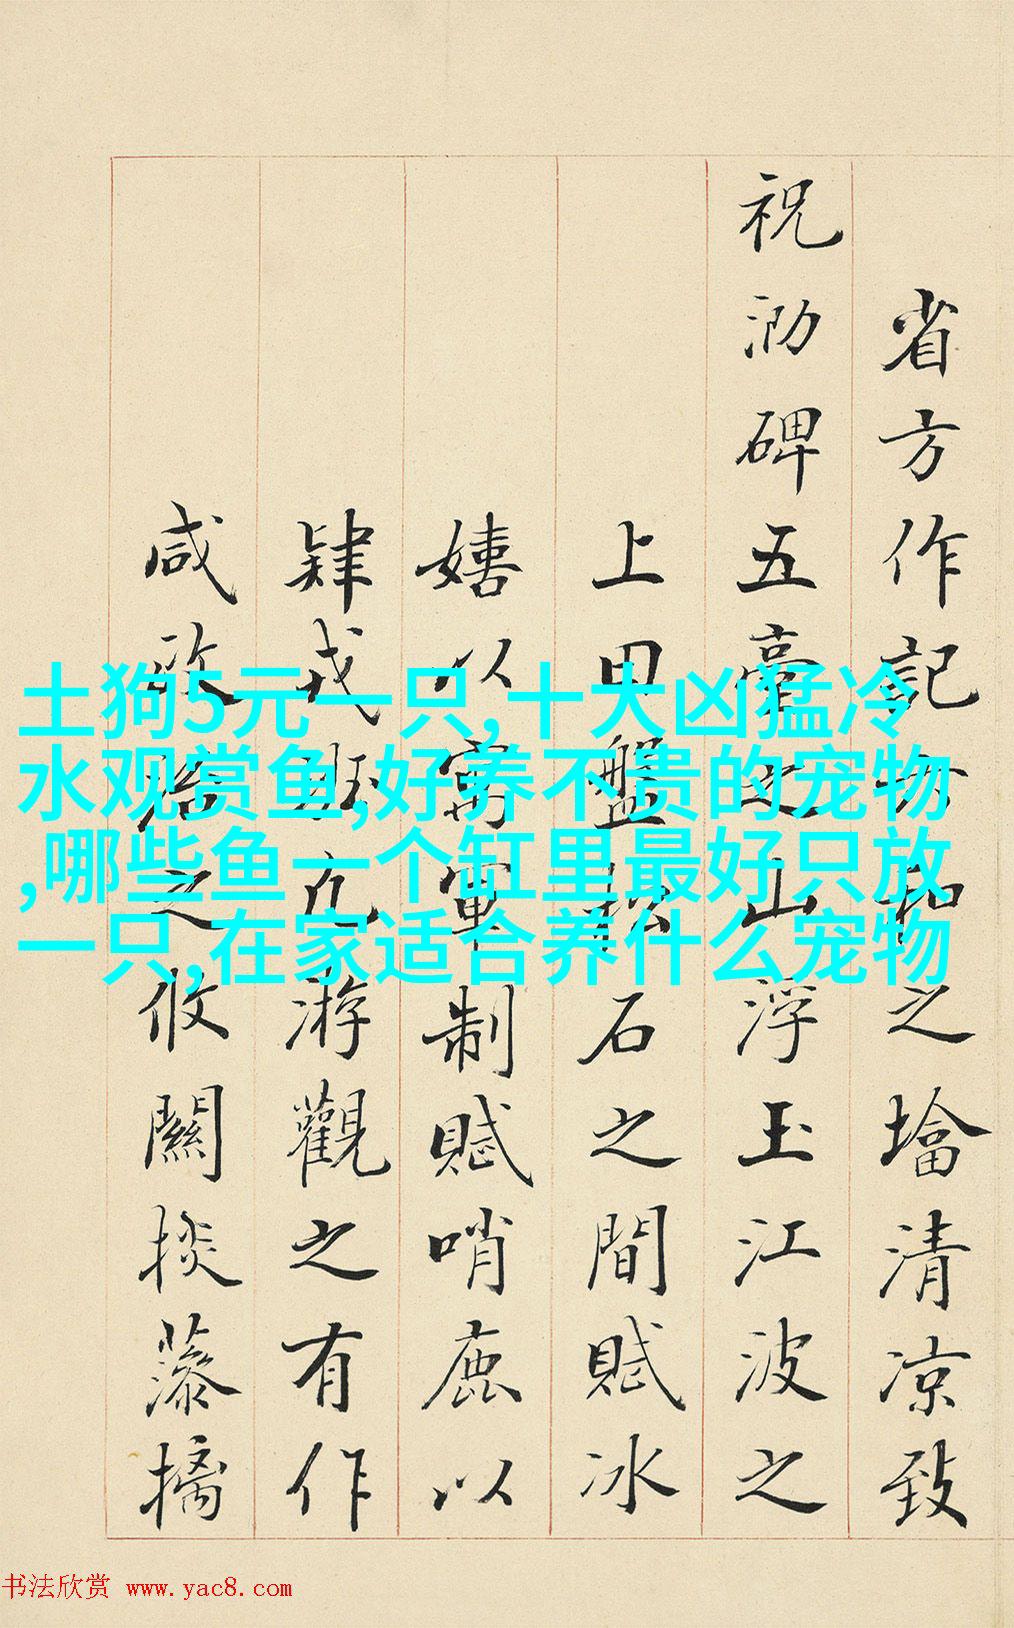 土狗5元一只,十大凶猛冷
水观赏鱼,好养不贵的宠物
,哪些鱼一个缸里最好只放
一只,在家适合养什么宠物
省方作記之墖清凉致
祝泐碑五臺之山浮玉江波之
上田盤石之間賦冰
嬉以寓軍制賦哨鹿以
肆戎游觀之有作
咸之攸關掞藻摛
书法欣赏 www.yac8.com